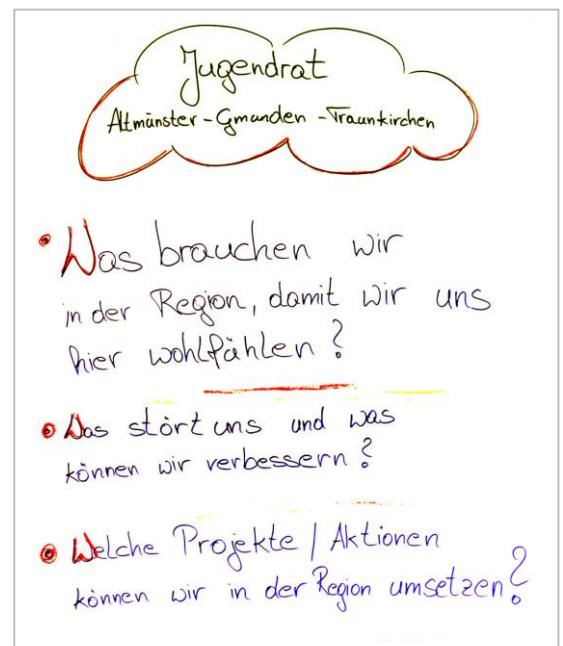 Jugendrat
Altmünster - Gmunden - Traunkirchen
• Was brauchen wir
in der Region, damit wir uns
hier wohlfühlen?
• Was stört uns und was
können wir verbessern?
• Welche Projekte / Aktionen
können wir in der Region umsetzen?